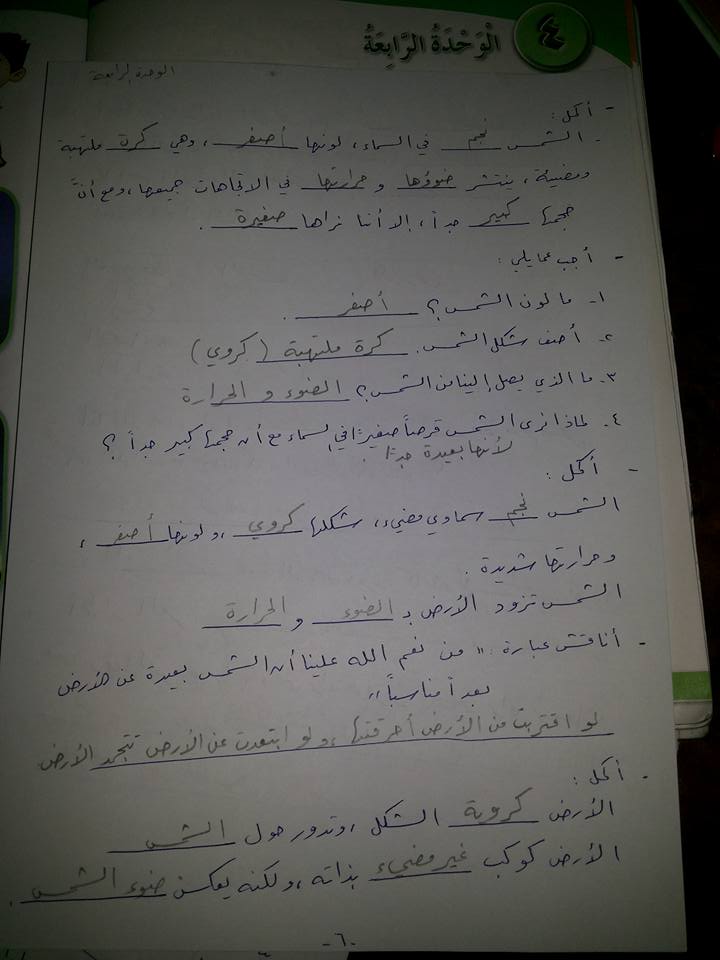 الْوَحْدَةُ الرَّابِعَةُ ٤
الوحدة الرابعة
- أكمل:
- الشمس نجم في السماء، لونها أصفر، وهي كرة ملتهبة
ومضيئة، ينتشر ضوؤها و حرارتها في الاتجاهات جميعها، ومع أنَّ
حجمها كبير جداً، إلا أننا نراها صغيرة.
- أجب عما يلي:
١- ما لون الشمس؟ أصفر.
٢- أصف شكل الشمس. كرة ملتهبة (كروي)
٣- ما الذي يصل إلينا من الشمس؟ الضوء و الحرارة
٤- لماذا نرى الشمس قرصاً صغيراً في السماء مع أن حجمها كبير جداً؟
لأنها بعيدة جداً.
- أكمل:
الشمس نجم سماوي مضيء، شكلها كروي، ولونها أصفر،
وحرارتها شديدة.
الشمس تزود الأرض بـ الضوء و الحرارة
- أناقش عبارة: "من نعم الله علينا أن الشمس بعيدة عن الأرض
بعداً مناسباً"
لو اقتربت من الأرض أحرقتها، ولو ابتعدت عن الأرض تتجمد الأرض
- أكمل:
الأرض كروية الشكل، وتدور حول الشمس
الأرض كوكب غير مضيء بذاته، ولكنه يعكس ضوء الشمس.
-٦-